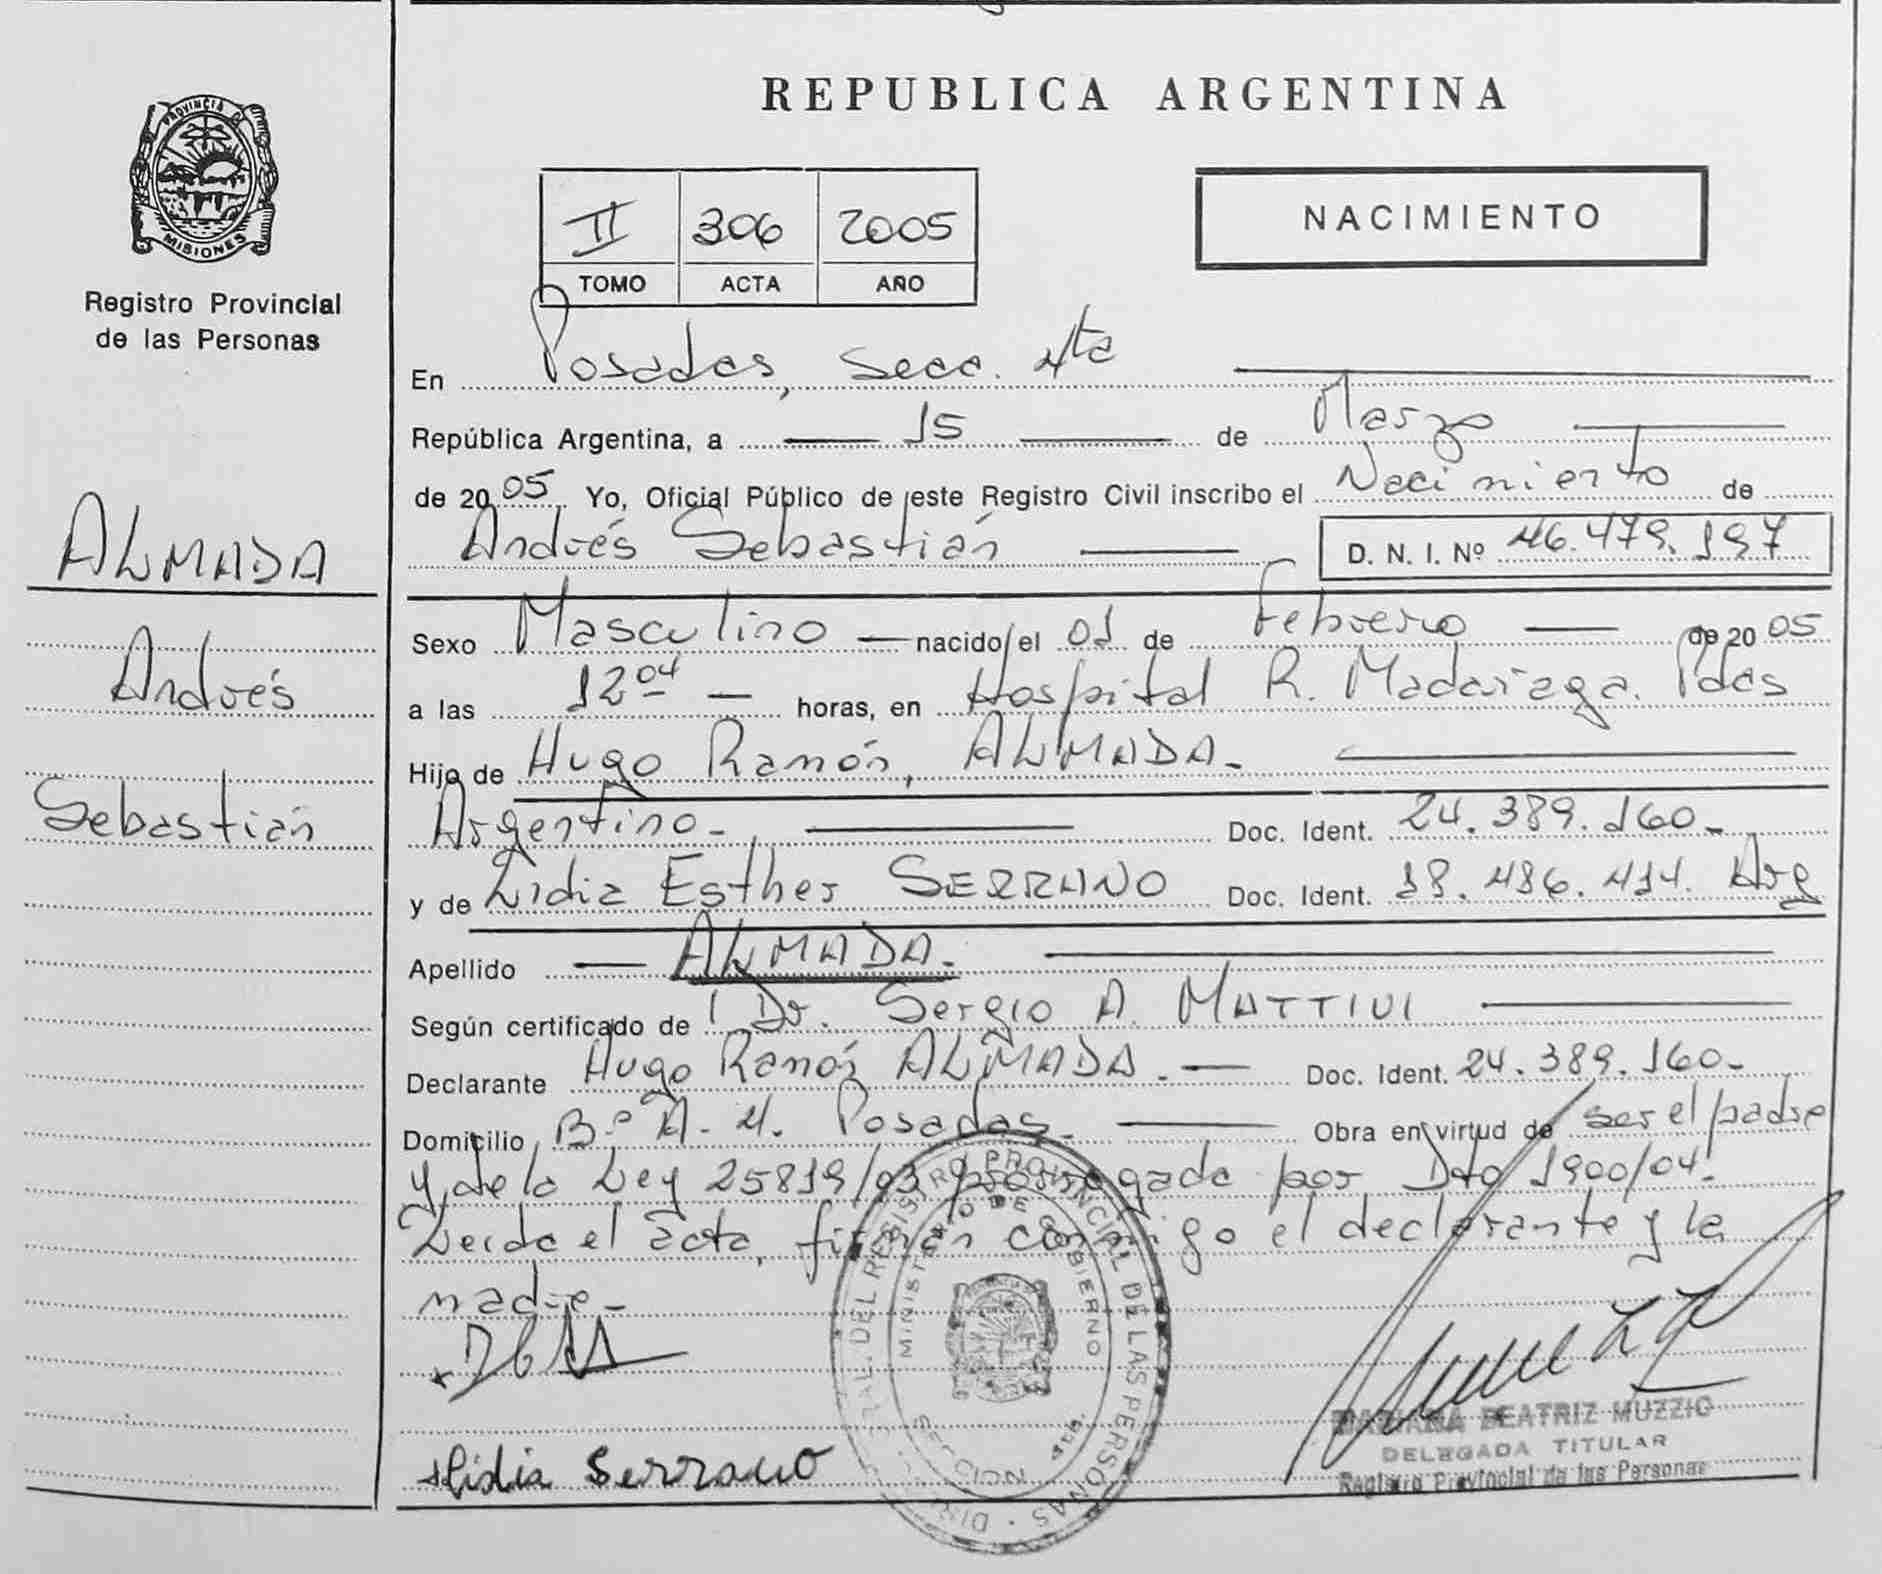 REPUBLICA ARGENTINA
PROVINCIA D
MISIONES
Registro Provincial
de las Personas
II 306 2005
TOMO ACTA AÑO
NACIMIENTO
En Posadas, Secc. 4ta
República Argentina, a 15 de Marzo
de 2005 Yo, Oficial Público de este Registro Civil inscribo el Nacimiento de
Andrés Sebastián D. N. I. Nº 46.479.197
ALMADA
Andrés
Sebastián
Sexo Masculino nacido el 01 de Febrero de 2005
a las 12 04 horas, en Hospital R. Madariaga. Pdas
Hijo de Hugo Ramón, ALMADA.
Argentino. Doc. Ident. 24.389.160.
y de Lidia Esther SERRANO Doc. Ident. 18.486.414. Arg
Apellido ALMADA.
Según certificado de Dr. Sergio A. MATTIVI
Declarante Hugo Ramón ALMADA. Doc. Ident. 24.389.160.
Domicilio Bº A. 4. Posadas. Obra en virtud de ser el padre
y de la Ley 25819/03 prorrogada por Dto 1900/04.
Leída el acta, firman conmigo el declarante y la
madre.
Lidia Serrano
REGISTRO PROVINCIAL DE LAS PERSONAS
MINISTERIO DE GOBIERNO
BEATRIZ MUZZIO
DELEGADA TITULAR
Registro Provincial de las Personas